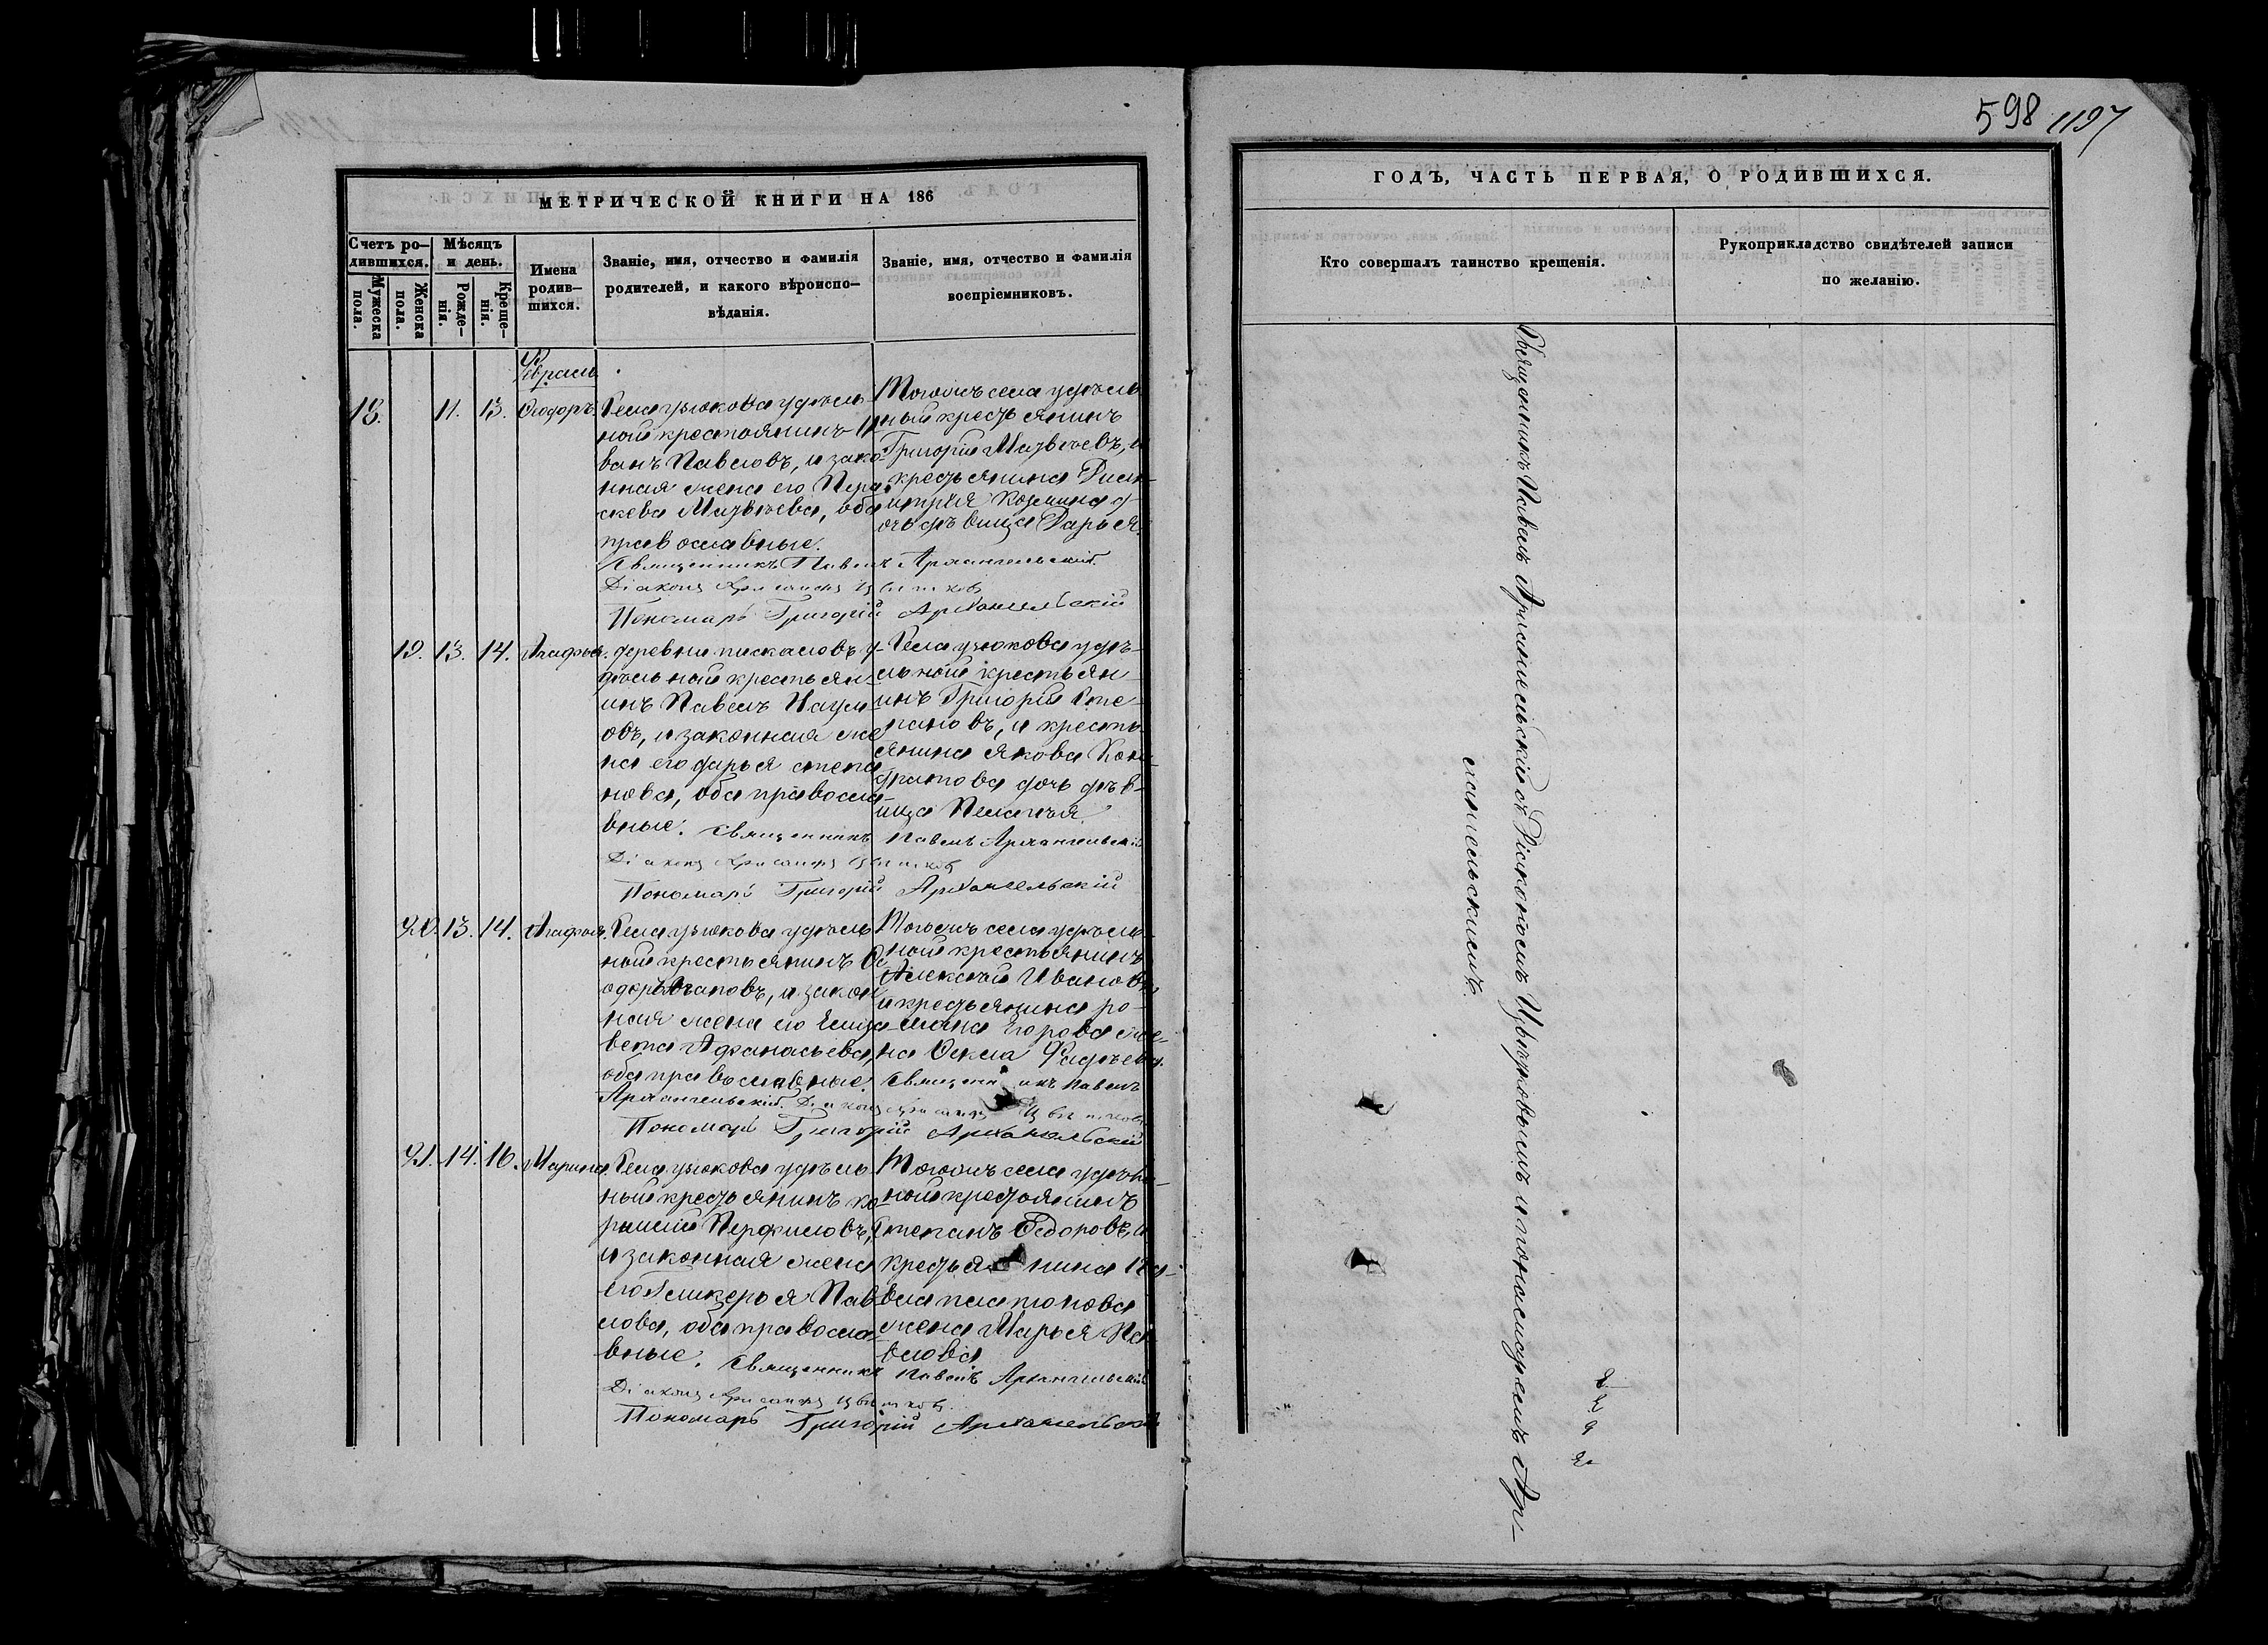 598 1197
МЕТРИЧЕСКОЙ КНИГИ НА 186
ГОДЪ, ЧАСТЬ ПЕРВАЯ, О РОДИВШИХСЯ.
Счетъ ро-
дившихся.
Мужеска
пола.
Женска
пола.
Мѣсяцъ
и день.
Рожде-
нія.
Креще-
нія.
Имена
родив-
шихся.
Званіе, имя, отчество и фамилія
родителей, и какого вѣроиспо-
вѣданія.
Званіе, имя, отчество и фамилія
воспріемниковъ.
Кто совершалъ таинство крещенія.
Рукоприкладство свидѣтелей записи
по желанію.
Февраль
18. 11. 13. Ѳеодоръ.
Села узюкова удѣль
ной крестьянинъ И
ванъ Павловъ, и зако
нная жена его Пара
скева Матвѣева, оба
православные.
Тогожъ села удѣль
ной крестьянинъ
Григорій Матвѣевъ, и
крестьянина Дими
трія Козмина д
очь дѣвица Дарья.
Священникъ Павелъ Архангельскій.
Діаконъ Хрисанфъ Цвѣтковъ
Пономарь Григорій Архангельскій
19. 13. 14. Агафья.
деревни пискаловъ у
дѣльной крестьян
инъ Павелъ Наум
овъ, и законная же
на его дарья степа
нова, оба правосла
вные.
Села узюкова удѣ-
льной крестьян
инъ Григорій Сте
пановъ, и кресть
янина Якова Кон
дратова дочь дѣв-
ица Пелагія.
Священникъ Павелъ Архангельскій
Діаконъ Хрисанфъ Цвѣтковъ
Пономарь Григорій Архангельскій
20. 13. 14. Агафья.
Села узюкова удѣль
ной крестьянинъ Ѳе
одоръ Агаповъ, и закон
ная жена его Елиза
вета Афанасьева,
оба православные.
Тогожъ села удѣль
ной крестьянинъ
Алексѣй Ивановъ
и крестьянина ро-
мана Егорова же-
на Ѳекла Фадѣева.
Священникъ Павелъ
Архангельскій. Діаконъ Хрисанфъ Цвѣтковъ
Пономарь Григорій Архангельскій
21. 14. 16. Марина.
Села узюкова удѣль
ный крестьянинъ ко
рнилій Перфиловъ,
и законная жена
его Гликерья Пав
лова, оба правосла
вные.
Тогожъ села удѣль-
ной крестьянинъ
Степанъ Ѳедоровъ, и
крестьянина Па-
вла платонова
жена Марья Па
влова
Священникъ Павелъ Архангельскій
Діаконъ Хрисанфъ Цвѣтковъ
Пономарь Григорій Архангельскій
Священникъ Павелъ Архангельскій съ Діакономъ Цвѣтковымъ и пономаремъ Арх-
ангельскимъ.